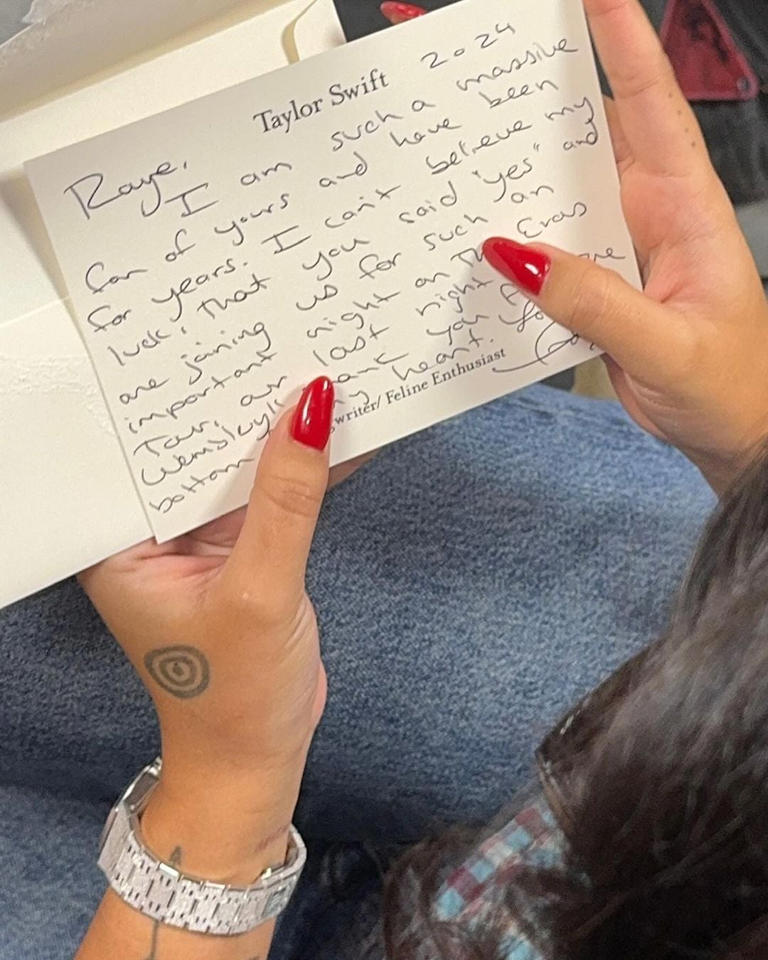 Taylor Swift 2024
Raye,
I am such a massive
fan of yours and have been
for years. I can't believe my
luck that you said "yes" and
are joining us for such an
important night on The Eras
Tour, our last night
Wembley! Thank you
bottom my heart.
writer/ Feline Enthusiast